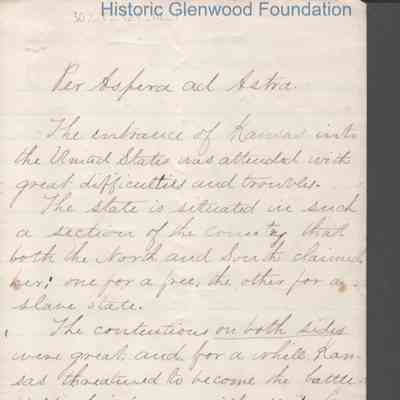 Historic Glenwood Foundation
Per Aspera ad Astra.
The entrance of Kansas into
the United States was attended with
great difficulties and troubles.
The state is situated in such
a section of the country that
both the North and South claimed
her; one for a free, the other for a
slave state.
The contentions on both sides
were great and for a while Kan-
sas threatened to become the battle-